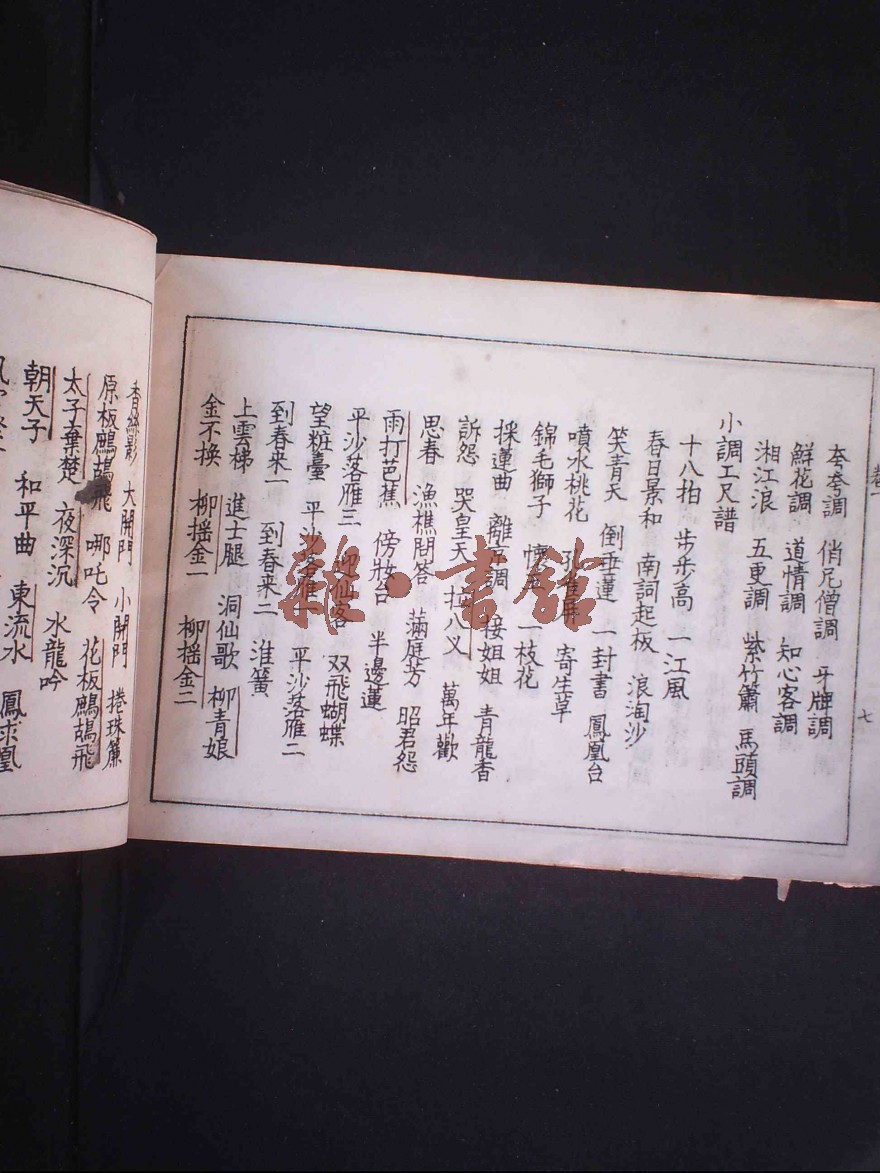 夸夸調 俏尼僧調 牙牌調
鮮花調 道情調 知心客調
湘江浪 五更調 紫竹簫 馬頭調
小調工尺譜
十八拍 步步高 一江風
春日景和 南詞起板 浪淘沙
笑青天 倒垂蓮 一封書 鳳凰台
噴水桃花 孔雀屏 寄生草
錦毛獅子 一枝花
採蓮曲 接姐姐 青龍香
訴怨 哭皇天 拉八义 萬年歡
思春 漁樵問答 滿庭芳 昭君怨
雨打芭蕉 傍妝台 半邊蓮
平沙落雁三 双飛蝴蝶
望粧臺 平沙落雁一 平沙落雁二
到春来一 到春来二 淮簧
上雲梯 進士腿 洞仙歌 柳青娘
金不换 柳摇金一 柳摇金二
七
雜·書館
香絲影 大開門 小開門 捲珠簾
原板鷓鴣飛 哪吒令 花板鷓鴣飛
太子棄楚 夜深沉 水龍吟
朝天子 和平曲 東流水 鳳求凰